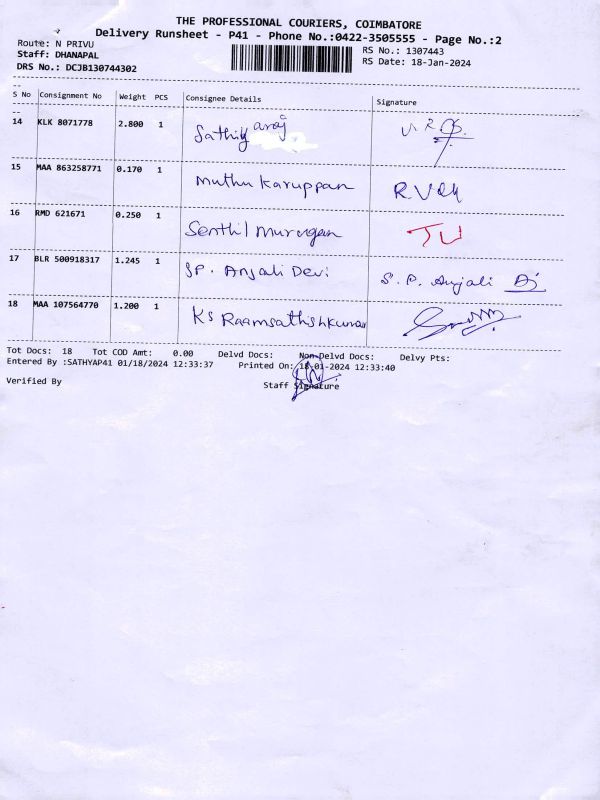 THE PROFESSIONAL COURIERS, COIMBATORE
Delivery Runsheet - P41 - Phone No.:0422-3505555 - Page No.:2
Route: N PRIVU
RS No.: 1307443
Staff: DHANAPAL
RS Date: 18-Jan-2024
DRS No.: DCJB130744302
S No Consignment No Weight PCS Consignee Details Signature
14 KLK 8071778 2.800 1 Sathiyaraj
15 MAA 863258771 0.170 1 Muthu Karuppan
16 RMD 621671 0.250 1 Senthil Murugan
17 BLR 500918317 1.245 1 SP. Anjali Devi S. P. Anjali
18 MAA 107564770 1.200 1 KS Raamsathishkumar
Tot Docs: 18 Tot COD Amt: 0.00 Delvd Docs: Non-Delvd Docs: Delvy Pts:
Entered By :SATHYAP41 01/18/2024 12:33:37 Printed On: 18-01-2024 12:33:40
Verified By Staff Signature